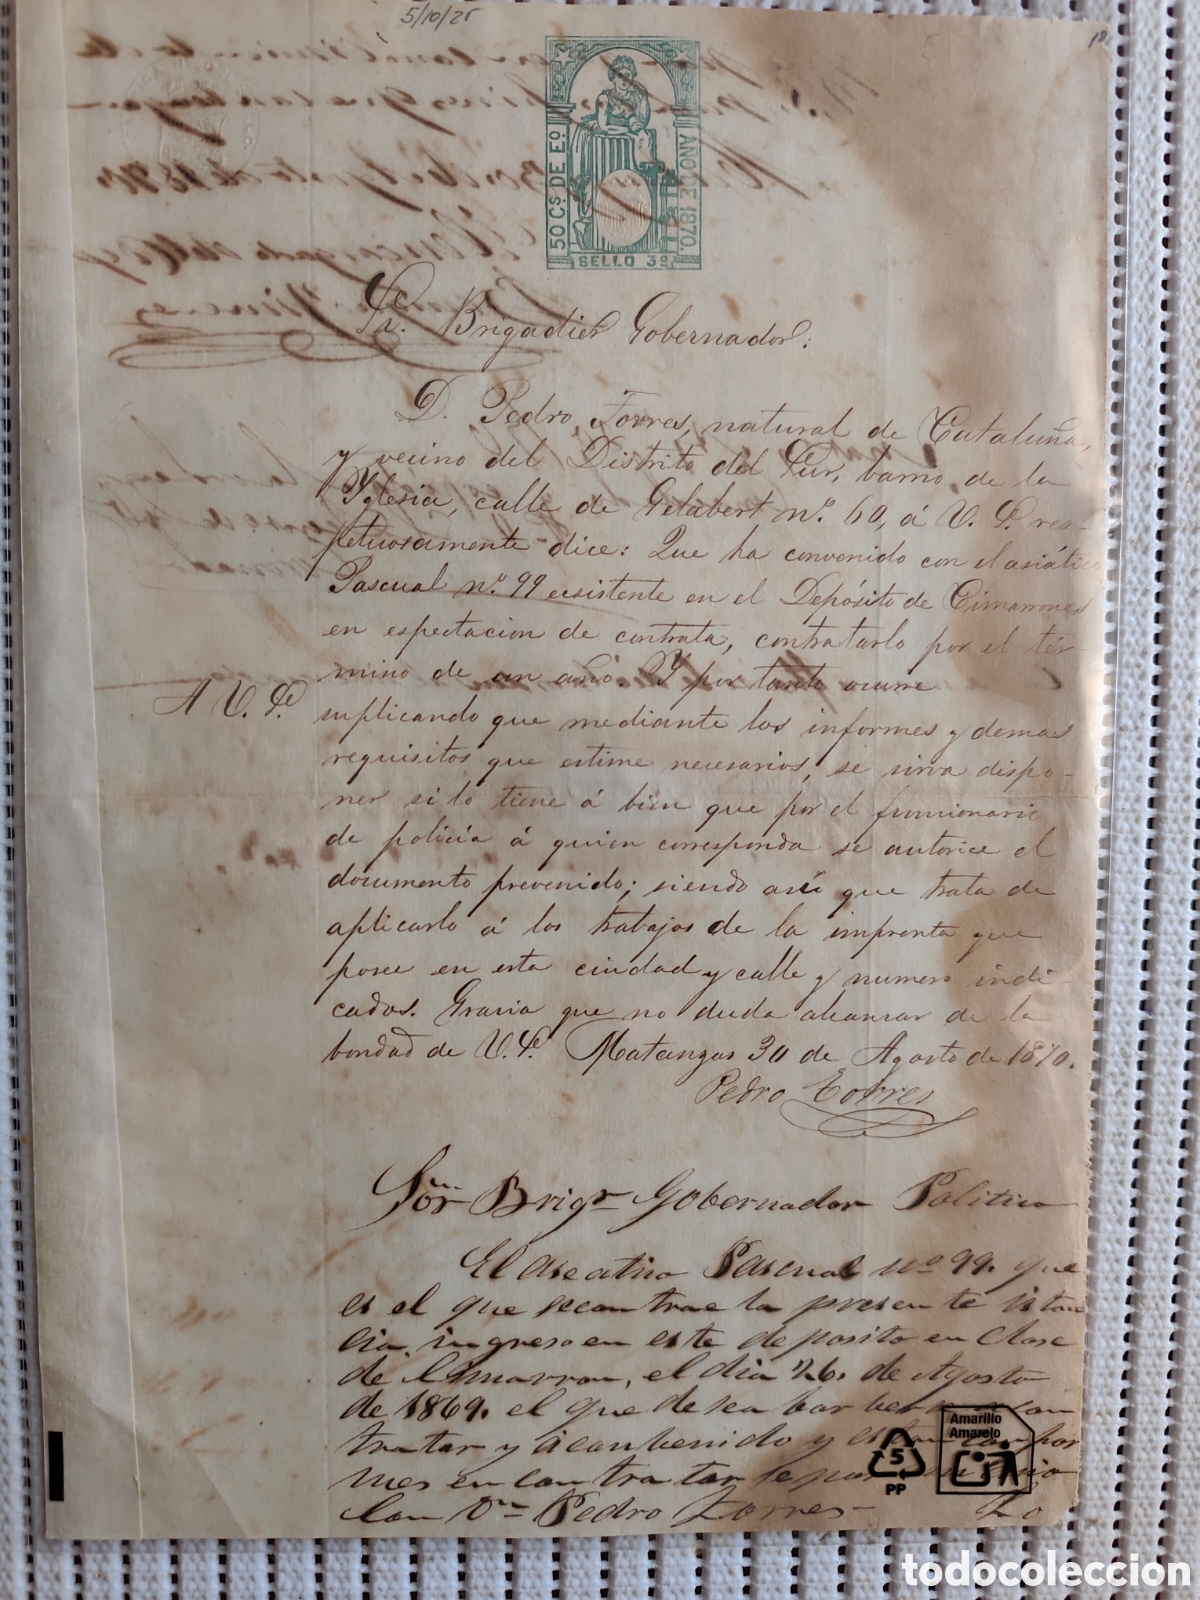 5/10/25
50 Cs DE Eo
AÑO DE 1870.
SELLO 3º
Sr. Brigadier Gobernador:
D. Pedro Torres, natural de Cataluña,
y vecino del Distrito del Sur, barrio de la
Yglesia, calle de Gelabert nº. 60, á V. S. res-
petuosamente dice: Que ha convenido con el asiático
Pascual nº 99 ecsistente en el Depósito de Cimarrones
en espectacion de contrata, contratarlo por el tér-
mino de un año. Y por tanto ocurre
A V. Sª.
suplicando que mediante los informes y demas
requisitos que estime necesarios, se sirva dispo-
ner si lo tiene á bien que por el funcionario
de policía á quien corresponda se autorice el
documento prevenido; siendo así que trata de
aplicarlo á los trabajos de la imprenta que
posee en esta ciudad y calle y numero indi
cados. Gracia que no duda alcanzar de la
bondad de V. S. Matanzas 30 de Agosto de 1870.
Pedro Torres
Sor Brigr Gobernador Politico
El aseatico Pascual nº 99. que
es el que secontrae la presente istan
cia, ingreso en este deposito en Clase
de Cimarron, el dia 26. de Agosto
de 1869. el que desea
tratar y acombenido y
mes en contratarse por
Con Dn Pedro Torres-
Lo
Amarillo
Amarelo
5
PP
todocoleccion